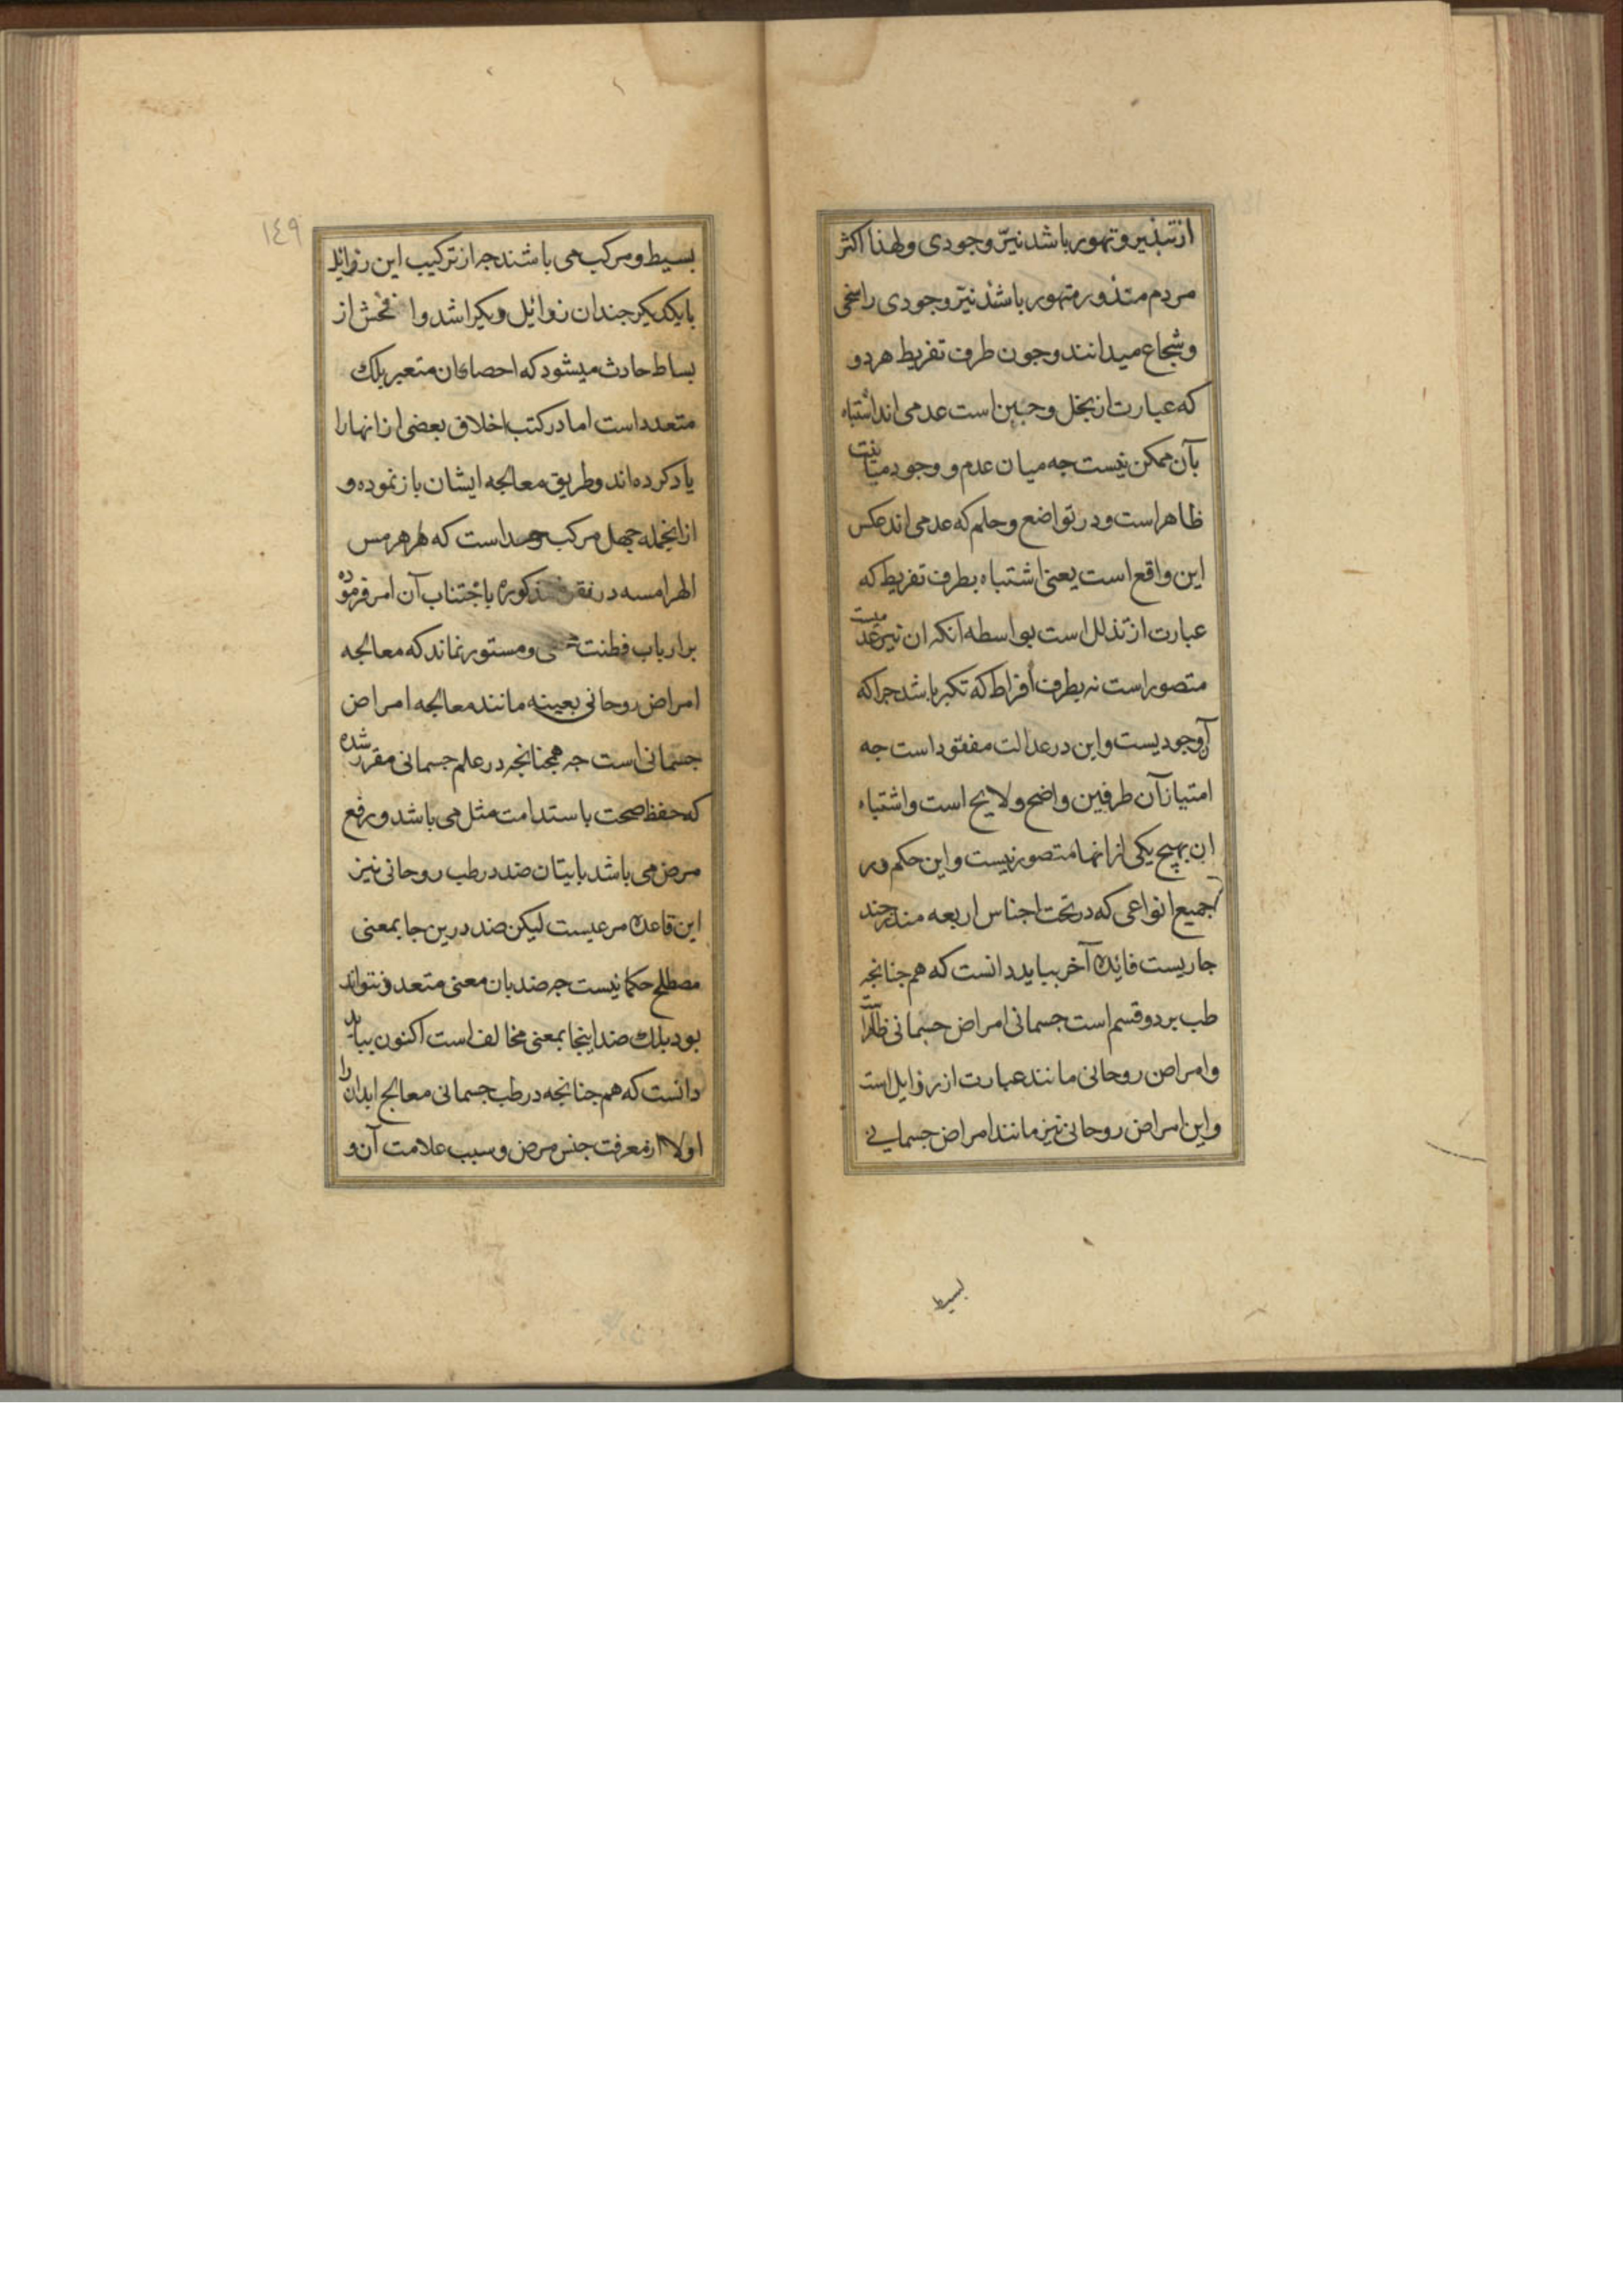 از تبذیر و تهور باشد نیز وجودی و لهذا اکثر
مردم متذور متهور باشد نیز وجودی را سخی
و شجاع میدانند و جون طرف تفریط هر دو
که عبارت از بخل و جبن است عدمی اند اشتباه
بآن ممکن نیست جه میان عدم و وجود مباینت
ظاهر است و در تواضع و حلم که عدمی اند عکس
این واقع است یعنی اشتباه بطرف تفریط که
عبارت از تذلل است بواسطه آنکه ان نیز عدمیست
متصور است نه بطرف أفراط که تکبر باشد جرا که
آن وجودیست و این در عدالت مفقود است جه
امتیاز آن طرفین واضح و لایح است و اشتباه
ان بهیچ یکی از انها متصور نیست و این حکم در
جمیع انواعی که در تحت اجناس اربعه مندرجند
جاریست فائده آخر بباید دانست که هم جنانجه
طب بر دو قسم است جسمانی امراض جسمانی ظاهراست
و امراض روحانی مانند عبارت از رذایل است
و این امراض روحانی نیز مانند امراض جسمانی
بسیط
١٤٩
بسیط و مرکب می باشند جه از ترکیب این رذائل
بایکدیکر جندان رذائل دیکر اشد وا فحش از
بساط حادث میشود که احصای ان متعبر بلک
متعدد است اما در کتب اخلاق بعضی از انها را
یاد کرده اند و طریق معالجه ایشان باز نموده و
از انجمله جهل مرکب و حسد است که هر هرمس
الهرامسه در فقره مذکوره باجتناب آن امر فرموده
بر ارباب فطنت و مستور نماند که معالجه
امراض روحانی بعینه مانند معالجه امراض
جسمانی است جه همجنانجه در علم جسمانی مقرر شده
که حفظ صحت باستدامت مثل می باشد و رفع
مرض می باشد بابیتان ضد در طب روحانی نیز
این قاعده مرعیست لیکن ضد درین جا بمعنی
مصطلح حکما نیست جه ضد بان معنی متعدد نتواند
بود بلک ضد اینجا بمعنی مخالف است اکنون بباید
دانست که هم جنانجه در طب جسمانی معالج ابدان را
اولا از معرفت جنس مرض و سبب علامت آن و